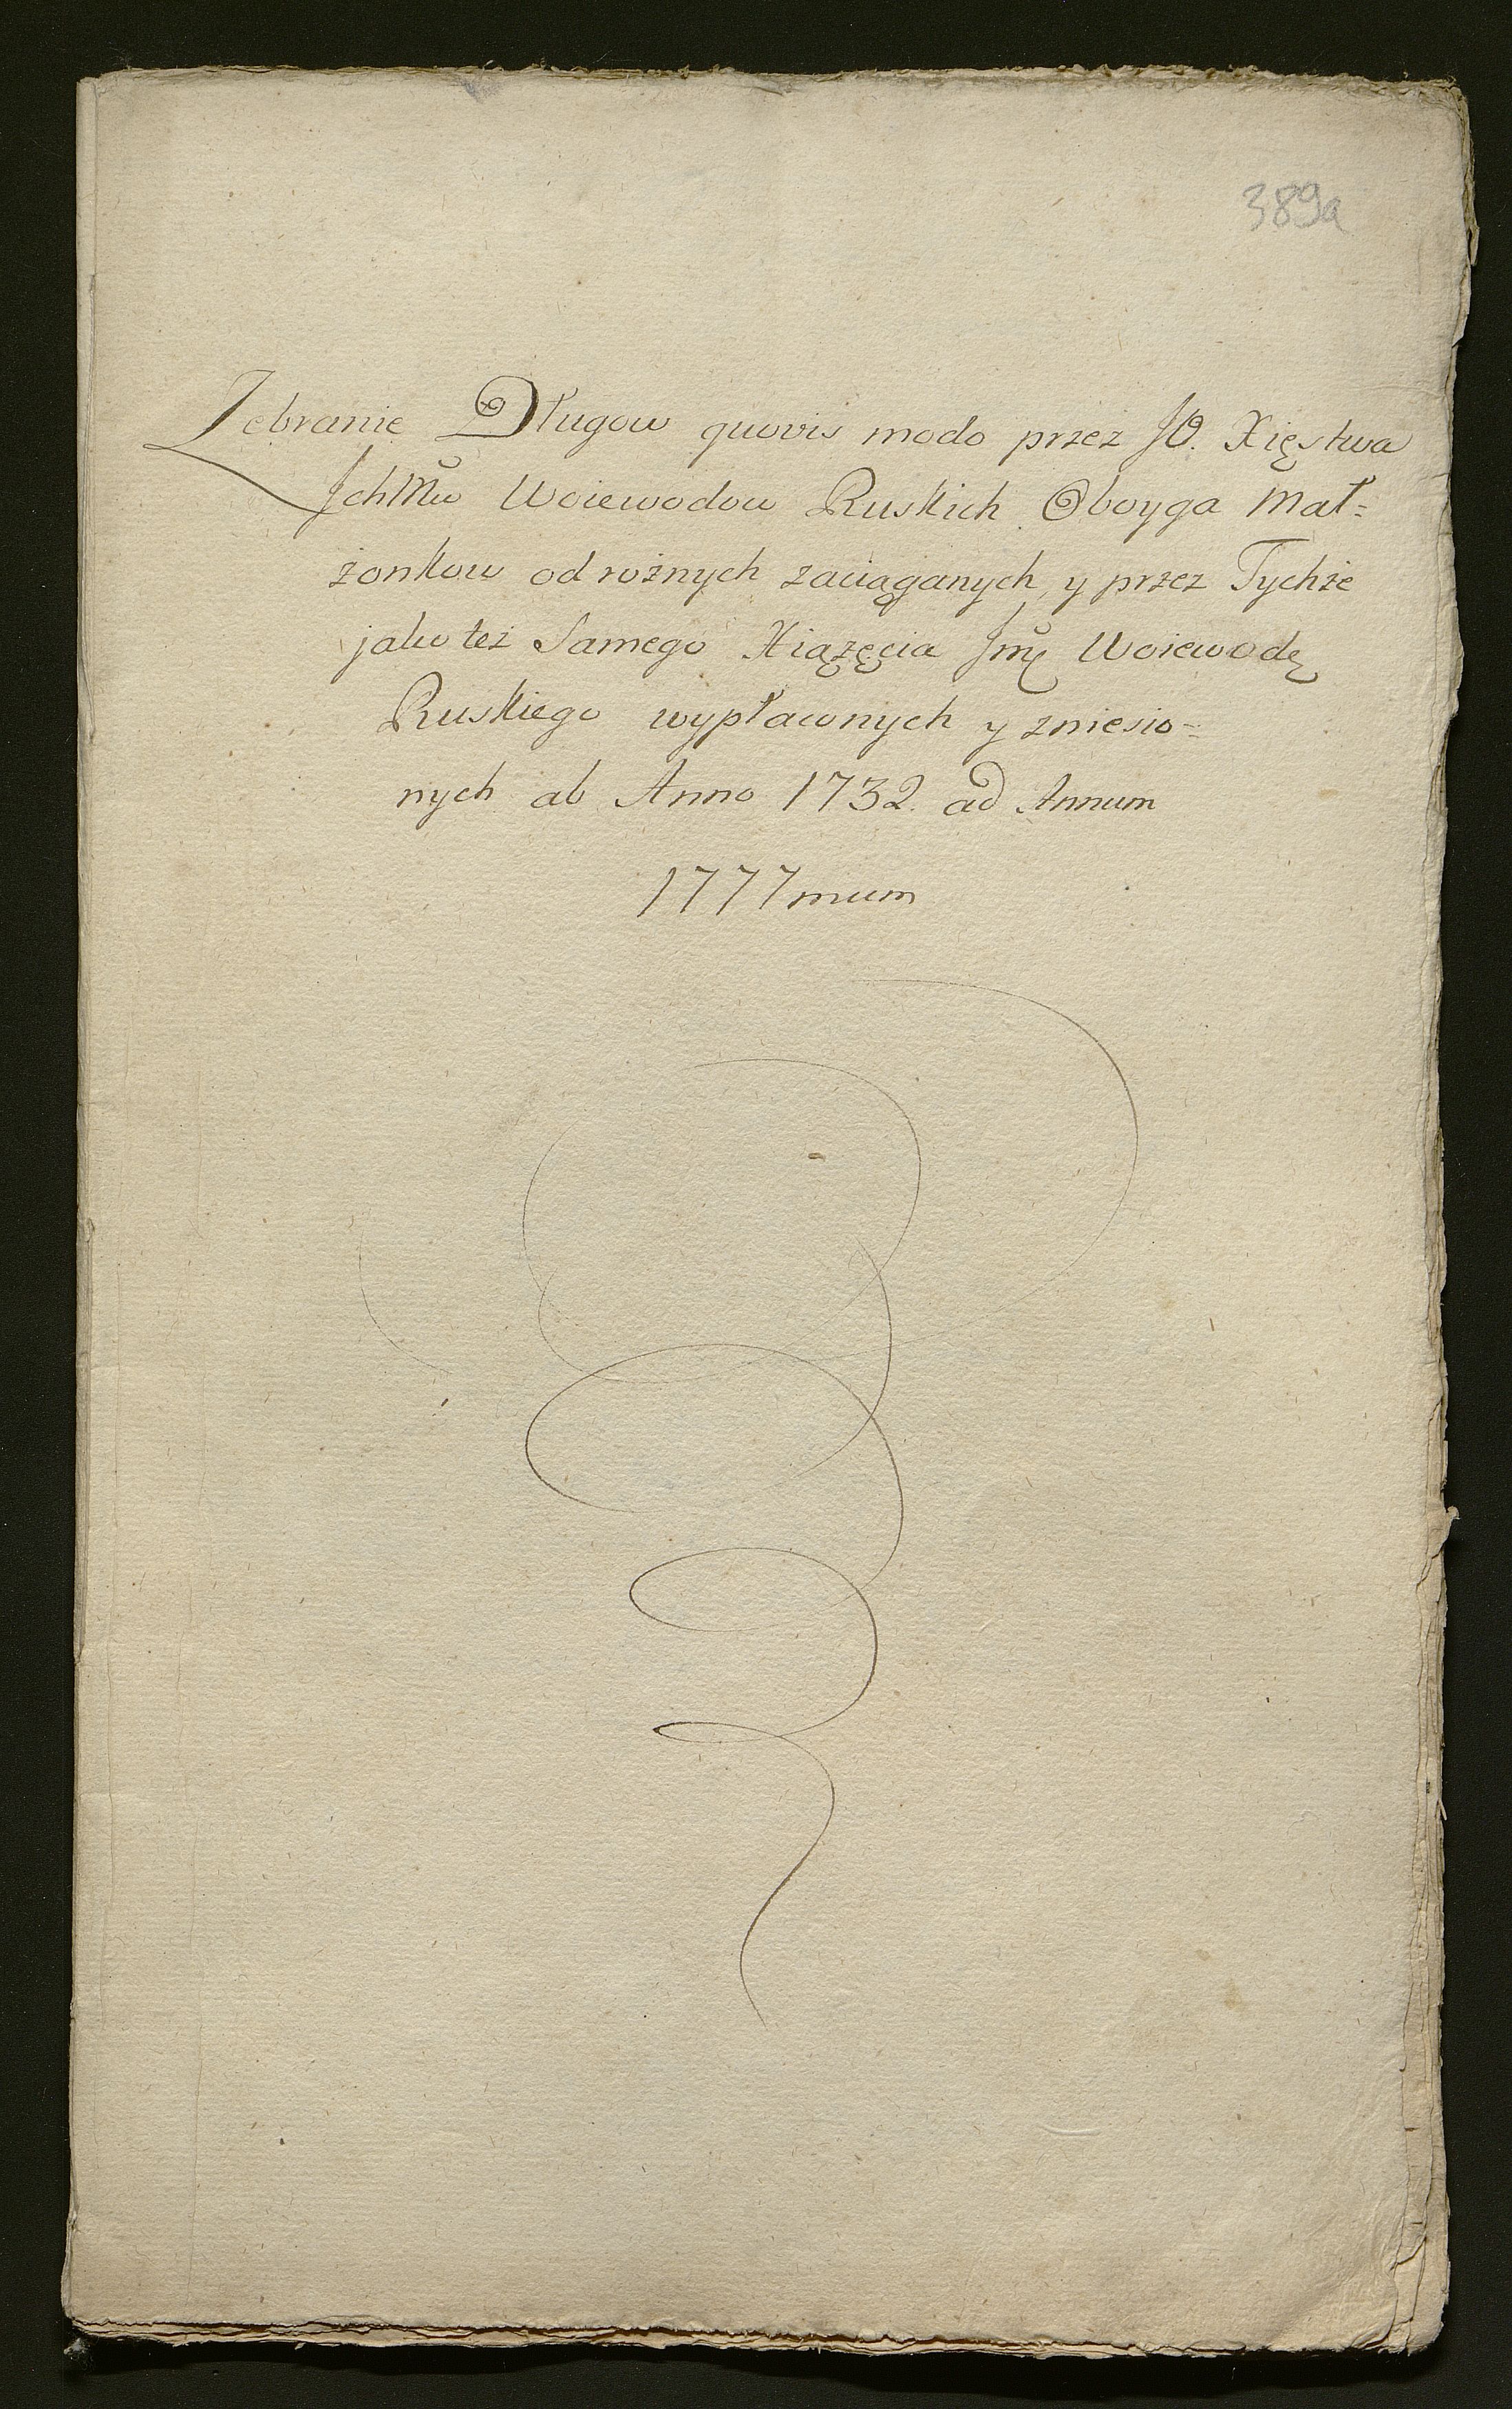 389a
Zebranie Długow quovis modo przez JO. Xięstwa
Ichmw Woiewodow Ruskich Oboyga Mał=
żonkow od rożnych zaciąganych, y przez Tychże
jako też Samego Xiążęcia Jmę Woiewodę
Ruskiego wypłaconych y zniesio=
nych ab Anno 1732. ad Annum
1777mum